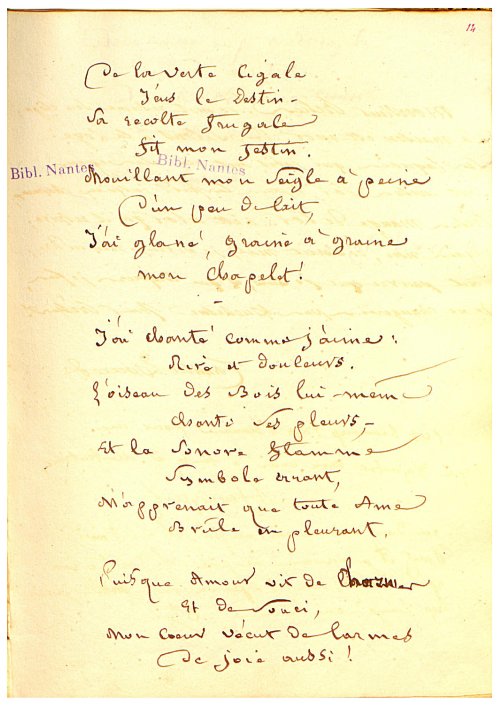 14
De la verte Cigale
J'eus le Destin -
Sa récolte frugale
Fit mon festin.
Bibl. Nantes
Bibl. Nantes
Mouillant mon seigle à peine
D'un peu de lait,
J'ai glané, graine à graine
mon Chapelet!
J'ai chanté comme j'aime :
Rire et douleurs.
L'oiseau des Bois lui-même
Chante ses pleurs, -
Et la sonore flamme
Symbole errant,
M'apprenait que toute Ame
Brûle en pleurant.
Puisque Amour vit de
Et de souci,
Mon coeur vécut de larmes
De joie aussi !